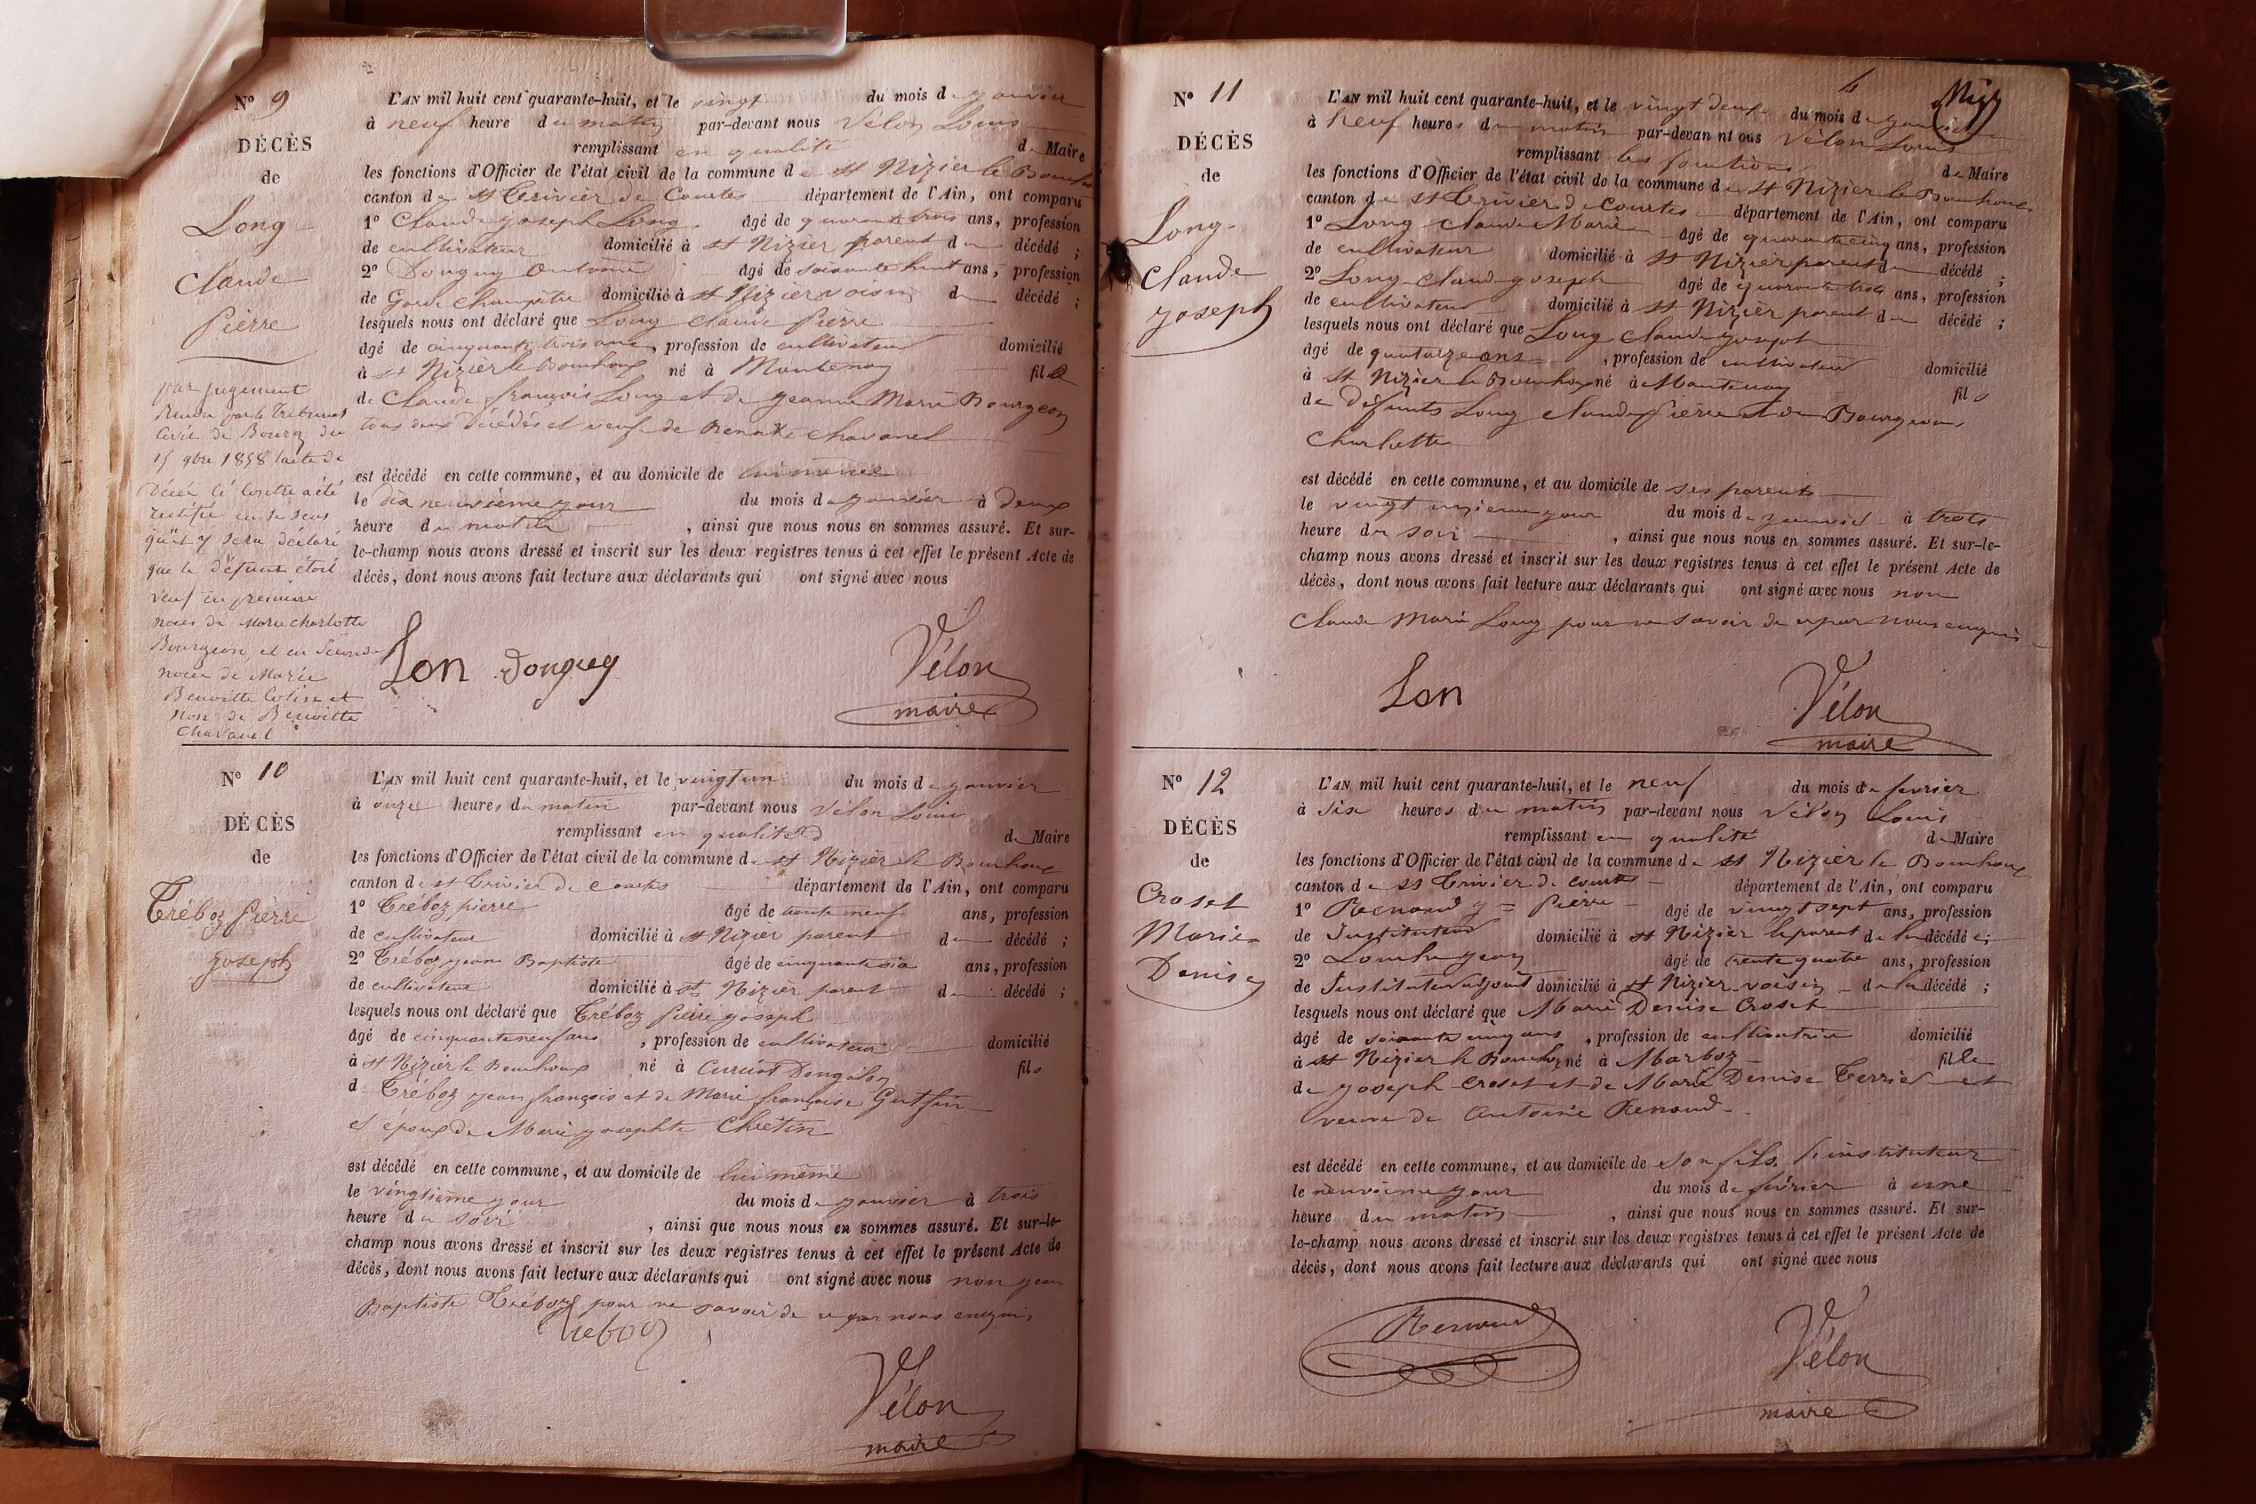 N° 9
DÉCÈS
de
Long
Claude
Pierre
par jugement
rendu par le tribunal
Civil de Bourg du
15 9bre 1858 l'acte de
Décès ci contre a été
rectifié en ce sens
qu'il y sera déclaré
que le défunt était
veuf en premières
noces de Marie Charlotte
Bourgeon et en secondes
noces de Marie
Benoitte et
non de Benoitte
Chavanel
L'AN mil huit cent quarante-huit, et le vingt du mois de janvier
à neuf heure du matin par-devant nous Vélon Louis
remplissant en qualité de Maire
les fonctions d'Officier de l'état civil de la commune de st Nizier le Bouchoux
canton de st Trivier de Courtes département de l'Ain, ont comparu
1° Claude Joseph Long âgé de quarante trois ans, profession
de cultivateur domicilié à st Nizier parent du décédé ;
2° Donguy Antoine âgé de soixante huit ans, profession
de Garde Champêtre domicilié à st Nizier voisin du décédé ;
lesquels nous ont déclaré que Long Claude Pierre
âgé de cinquante trois ans, profession de cultivateur domicilié
à st Nizier le Bouchoux né à Mantenay fils
de Claude françois Long et de jeanne Marie Bourgeon
tous deux décédés et veuf de Benoite Chavanel
est décédé en cette commune, et au domicile de lui même
le dix neuvième jour du mois de janvier à deux
heure du matin, ainsi que nous nous en sommes assuré. Et sur-
le-champ nous avons dressé et inscrit sur les deux registres tenus à cet effet le présent Acte de
décès, dont nous avons fait lecture aux déclarants qui ont signé avec nous
Lon Donguy Vélon
maire
N° 10
DÉCÈS
de
Tréboz Pierre
joseph
L'AN mil huit cent quarante-huit, et le vingt un du mois de janvier
à onze heures du matin par-devant nous Vélon Louis
remplissant en qualité de Maire
les fonctions d'Officier de l'état civil de la commune de st Nizier le Bouchoux
canton de st Trivier de Courtes département de l'Ain, ont comparu
1° Tréboz pierre âgé de trente neuf ans, profession
de cultivateur domicilié à st Nizier parent du décédé ;
2° Tréboz jean Baptiste âgé de cinquante six ans, profession
de cultivateur domicilié à st Nizier parent du décédé ;
lesquels nous ont déclaré que Tréboz Pierre joseph
âgé de cinquante neuf ans, profession de cultivateur domicilié
à st Nizier le Bouchoux né à Curciat Dongalon fils
de Tréboz jean françois et de Marie françoise
et époux de Marie josephte Chrétin
est décédé en cette commune, et au domicile de lui même
le vingtième jour du mois de janvier à trois
heure du soir, ainsi que nous nous en sommes assuré. Et sur-le-
champ nous avons dressé et inscrit sur les deux registres tenus à cet effet le présent Acte de
décès, dont nous avons fait lecture aux déclarants qui ont signé avec nous non jean
Baptiste Tréboz pour ne savoir de ce par nous enquis
Treboz
Vélon
maire
N° 11
DÉCÈS
de
Long
Claude
joseph
6
L'AN mil huit cent quarante-huit, et le vingt deux du mois de janvier
à neuf heures du matin par-devan nt ous Vélon Louis
remplissant les fonctions de Maire
les fonctions d'Officier de l'état civil de la commune de st Nizier le Bouchoux
canton de st Trivier de Courtes département de l'Ain, ont comparu
1° Long Claude Marie âgé de quarante cinq ans, profession
de cultivateur domicilié à st Nizier parent du décédé ;
2° Long Claude joseph âgé de quarante trois ans, profession
de cultivateur domicilié à st Nizier parent du décédé ;
lesquels nous ont déclaré que Long Claude joseph
âgé de quatorze ans, profession de cultivateur domicilié
à st Nizier le Bouchoux né à Mantenay fils
de défunts Long Claude Pierre et de Bourgeon
Charlotte
est décédé en cette commune, et au domicile de ses parents
le vingt unième jour du mois de janvier à trois
heure du soir, ainsi que nous nous en sommes assuré. Et sur-le-
champ nous avons dressé et inscrit sur les deux registres tenus à cet effet le présent Acte de
décès, dont nous avons fait lecture aux déclarants qui ont signé avec nous non
Claude Marie Long pour ne savoir de ce par nous enquis
Lon Vélon
maire
N° 12
DÉCÈS
de
Croset
Marie
Denise
L'AN mil huit cent quarante-huit, et le neuf du mois de fevrier
à six heures du matin par-devant nous Vélon Louis
remplissant en qualité de Maire
les fonctions d'Officier de l'état civil de la commune de st Nizier le Bouchoux
canton de st Trivier de Courtes département de l'Ain, ont comparu
1° Renaud Pierre âgé de vingt sept ans, profession
de Instituteur domicilié à st Nizier le parent de la décédé e;
2° âgé de trente quatre ans, profession
de Instituteur adjoint domicilié à st Nizier voisin de la décédé ;
lesquels nous ont déclaré que Marie Denise Croset
âgé de soixante cinq ans, profession de cultivatrice domicilié
à st Nizier le Bouchoux né à Marboz fille
de joseph Croset et de Marie Denise Terrier et
veuve de Antoine Renaud
est décédé en cette commune, et au domicile de son fils l'instituteur
le neuvième jour du mois de février à une
heure du matin, ainsi que nous nous en sommes assuré. Et sur-
le-champ nous avons dressé et inscrit sur les deux registres tenus à cet effet le présent Acte de
décès, dont nous avons fait lecture aux déclarants qui ont signé avec nous
Renaud Vélon
maire